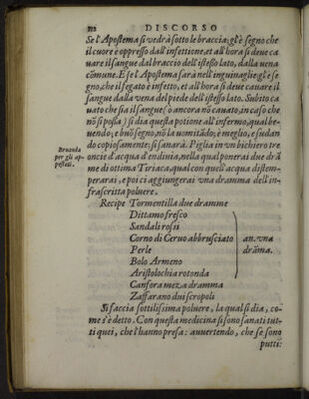 112 DISCORSO
Se l'Apostema si vedrà sotto le braccia: gl'è segno che
il cuore è oppresso dall'infettione, et all'hora si deve ca
vare il sangue dal braccio dell'istesso lato, dalla vena
cõmune. E se l'Apostema sarà nell'inguinaglie: gl'è se
gno, che il fegato è infetto, et all'hora si deve cavare il
sangue dalla vena del piede dell'istesso lato. Subito ca
uato che sia il sangue (ò ancora nò cauato, in caso che
nõ si possa) si dia questa potione all'infermo, qual be-
uendo, è buõ segno, nõ la uomitãdo; è meglio, e sudan
do copiosamente, si sanarà. Piglia in vn bichiero tre
Beuanda
per gli ap-
pestati.
oncie d'acqua d'endiuia, nella qual ponerai due drã
me di ottima Tiriaca, qual con quell'acqua distem-
perarai, e poi ci aggiungerai vna dramma dell'in-
frascritta poluere.
Recipe Tormentilla due dramme
Dittamo fresco
Sandali rossi
Corno di Ceruo abbrusciato an. vna
Perle drãma.
Bolo Armeno
Aristolochia rotonda
Canfora meza dramma
Zaffarano dui scropoli
Si faccia sottilissima poluere, la qual si dia, co-
me s'è detto. Con questa medicina si sono sanati tut-
ti quei, che l'hanno presa: auuertendo, che se sono
putti: